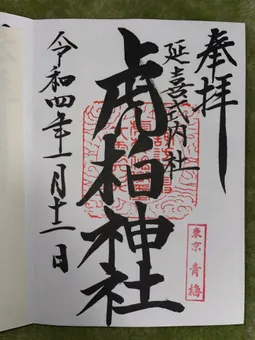 奉拝
延喜式内社
虎柏神社
令和四年一月十二日
東京 青梅